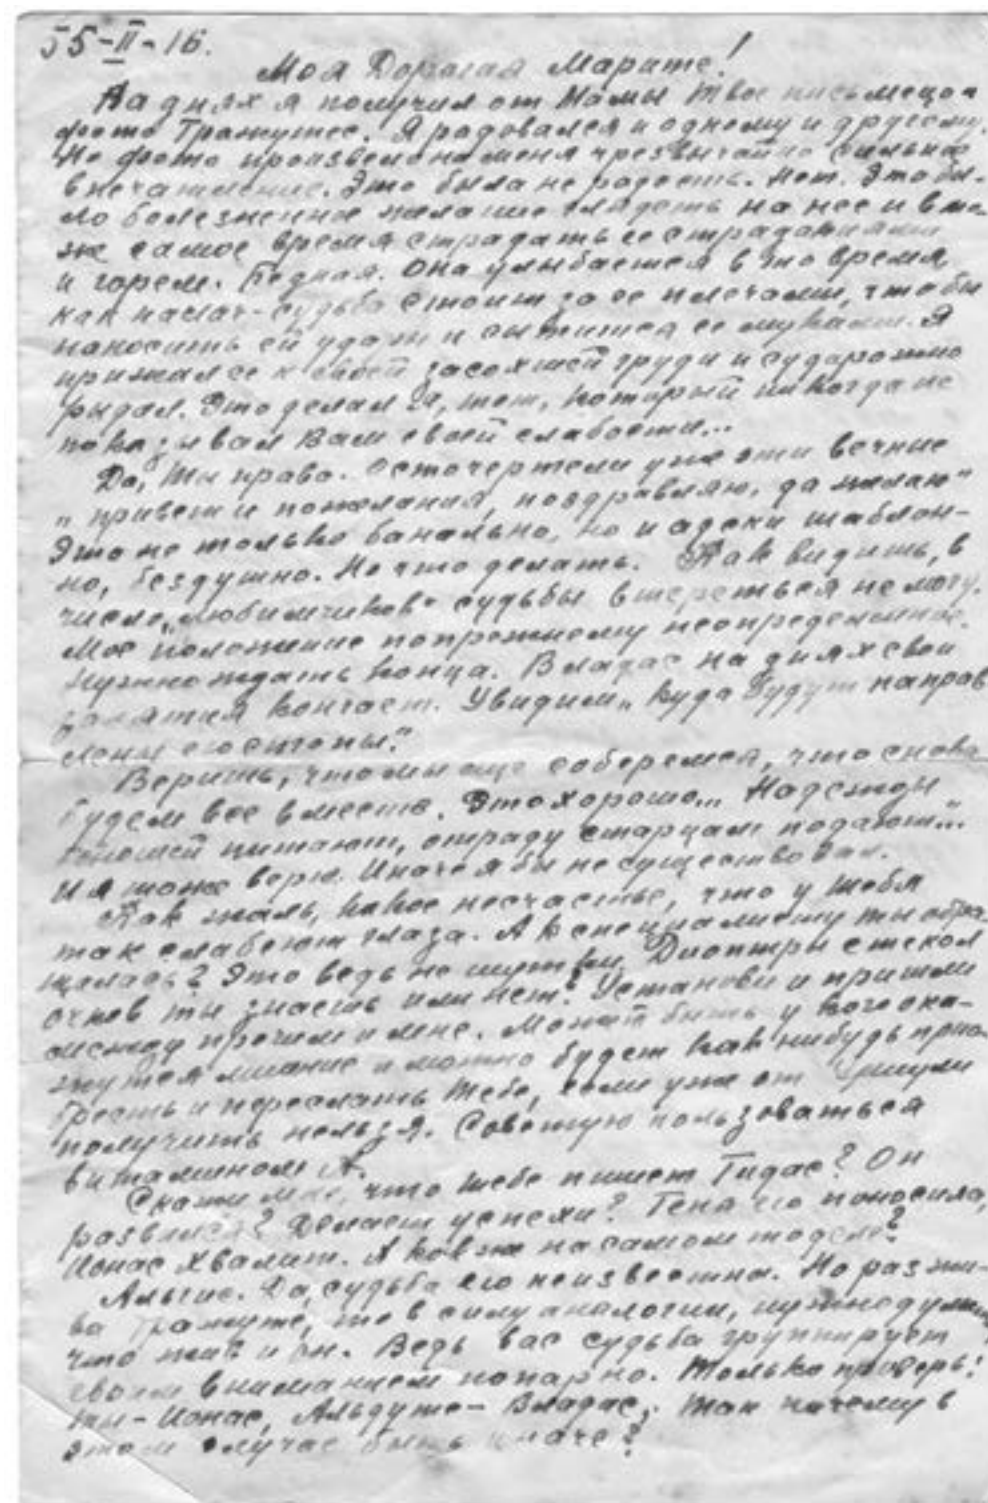 55-II-16.
Моя Дорогая Марите!
На днях я получил от Мамы Твое письмецо и
фото Гражутес. Я радовался и одному и другому.
Но фото произвело на меня чрезвычайно сильное
впечатление. Это была не радость. Нет. Это бы-
ло болезненное желание глядеть на нее и в то-
же самое время страдать ее страданиями
и горем. Бедная. Она улыбается в то время,
как палач-судьба стоит за ее плечами, чтобы
наносить ей удары и сытится ее муками. Я
прижал ее к своей засохшей груди и судорожно
рыдал. Это делал Я, тот, который никогда не
показывал Вам своей слабости...
Да, Ты права. Осточертели уже эти вечные
„привет и пожелания, поздравляю, да желаю"
Это не только банально, но и адски шаблон-
но, бездушно. Но что делать. Как видишь, в
число „любимчиков" судьбы втереться не могу.
Мое положение попрежнему неопределенное.
Нужно ждать конца. Владас на днях свои
занятия кончает. Увидим „куда будут направ
лены его стопы."
Веришь, что мы еще соберемся, что снова
будем все вместе. Это хорошо... Надежды
юношей питают, отраду старцам подают...
И я тоже верю. Иначе я бы не существовал.
Как жаль, какое несчастье, что у тебя
так слабеют глаза. А к специалисту ты обра-
щалась? Это ведь не шутки. Диоптри стекол
очков ты знаешь или нет? Установи и пришли
между прочим и мне. Может быть у кого ока-
жутся лишние и можно будет как нибудь приоб-
рести и переслать Тебе, если уже от
получить нельзя. Советую пользоваться
витамином А.
Скажи мне, что тебе пишет Гидас? Он
развился? Делает успехи? Гена его поносила,
Ионас хвалит. А как же на самом то деле?
Альгис. Да, судьба его неизвестна. Но раз жи-
ва Гражуте, то в силу аналогии, нужно думать,
что жив и он. Ведь вас судьба группирует
своим вниманием попарно. Только проверь:
ты - Ионас, Альдуте - Владас, так почему в
этом случае быть иначе?